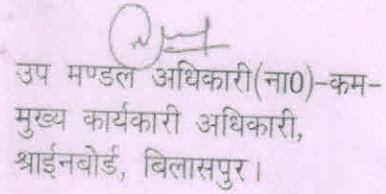 उप मण्डल अधिकारी(ना0)-कम-
मुख्य कार्यकारी अधिकारी,
श्राईनबोर्ड, बिलासपुर।